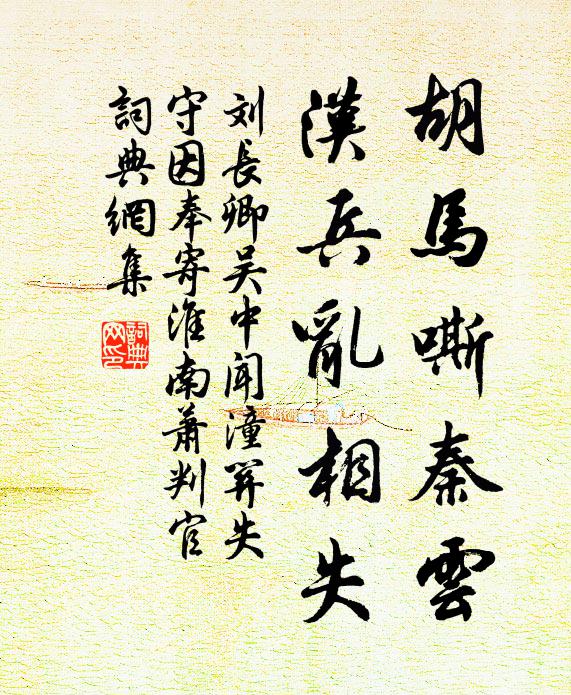 胡馬嘶秦雲
漢兵亂相失
刘長卿吴中闻潼関失
守因奉寄淮南萧判官
詞典網集
詞典
网印